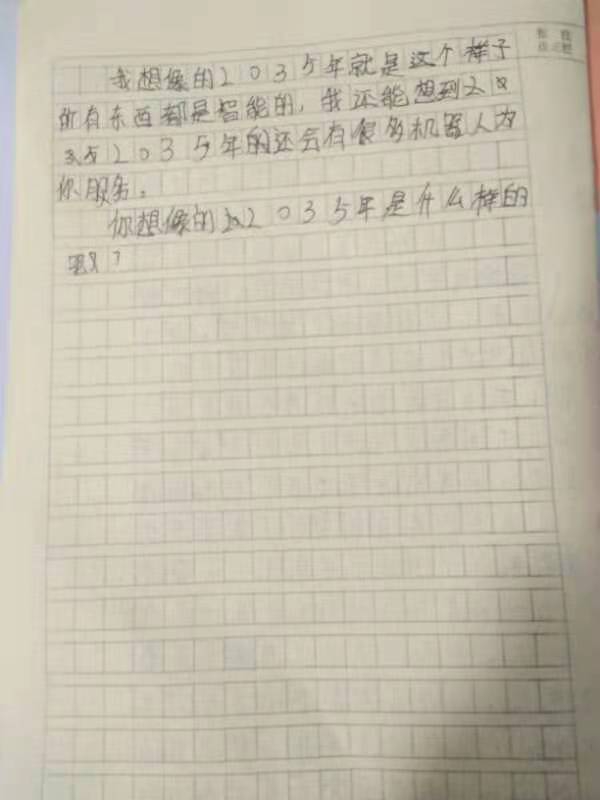 我想像的2035年就是这个样子
所有东西都是智能的,我还能想到
2035年的还会有很多机器人为
你服务。
你想像的2035年是什么样的
呢?